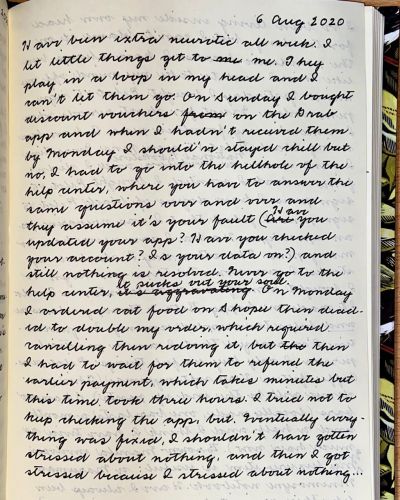 6 Aug 2020
Have been extra neurotic all week. I
let little things get to me me. They
play in a loop in my head and I
can't let them go. On Sunday I bought
discount vouchers from on the Grab
app and when I hadn't received them
by Monday I should'v stayed chill but
no, I had to go into the hellhole of the
help center, where you have to answer the
same questions over and over and
they assume it's your fault (Have you
updated your app? Have you checked
your account? Is your data on?) and
still nothing is resolved. Never go to the
help center, it's aggravating. it sucks out your soul. On Monday
I ordered cat food on Shopee then decid-
ed to double my order, which required
cancelling then redoing it, but the then
I had to wait for them to refund the
earlier payment, which takes minutes but
this time took three hours. I tried not to
keep checking the app, but. Eventually every-
thing was fixed, I shouldn't have gotten
stressed about nothing, and then I got
stressed because I stressed about nothing...